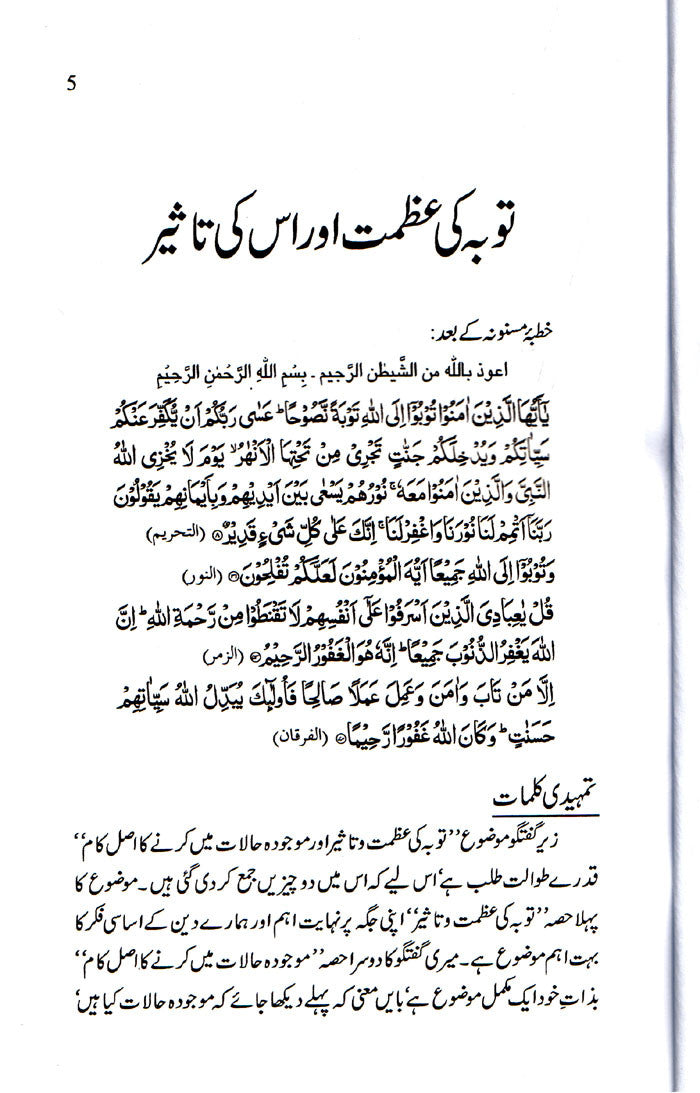 5
توبہ کی عظمت اور اس کی تاثیر
خطبۂ مسنونہ کے بعد:
اعوذ بالله من الشَّيطٰن الرَّجيم ۔ بِسْمِ اللهِ الرَّحْمٰنِ الرَّحِيْمِ
يٰٓاَيُّهَا الَّذِيْنَ اٰمَنُوْا تُوْبُوْٓا اِلَى اللّٰهِ تَوْبَةً نَّصُوْحًا ؕ عَسٰى رَبُّكُمْ اَنْ يُّكَفِّرَ عَنْكُمْ
سَيِّاٰتِكُمْ وَيُدْخِلَكُمْ جَنّٰتٍ تَجْرِيْ مِنْ تَحْتِهَا الْاَنْهٰرُ ۙ يَوْمَ لَا يُخْزِي اللّٰهُ
النَّبِيَّ وَالَّذِيْنَ اٰمَنُوْا مَعَهٗ ۚ نُوْرُهُمْ يَسْعٰى بَيْنَ اَيْدِيْهِمْ وَبِاَيْمَانِهِمْ يَقُوْلُوْنَ
رَبَّنَآ اَتْمِمْ لَنَا نُوْرَنَا وَاغْفِرْ لَنَا ۚ اِنَّكَ عَلٰى كُلِّ شَيْءٍ قَدِيْرٌ ۝۸ (التحریم)
وَتُوْبُوْٓا اِلَى اللّٰهِ جَمِيْعًا اَيُّهَ الْمُؤْمِنُوْنَ لَعَلَّكُمْ تُفْلِحُوْنَ ۝۳۱ (النور)
قُلْ يٰعِبَادِيَ الَّذِيْنَ اَسْرَفُوْا عَلٰٓى اَنْفُسِهِمْ لَا تَقْنَطُوْا مِنْ رَّحْمَةِ اللّٰهِ ؕ اِنَّ
اللّٰهَ يَغْفِرُ الذُّنُوْبَ جَمِيْعًا ؕ اِنَّهٗ هُوَ الْغَفُوْرُ الرَّحِيْمُ ۝۵۳ (الزمر)
اِلَّا مَنْ تَابَ وَاٰمَنَ وَعَمِلَ عَمَلًا صَالِحًا فَاُولٰٓئِكَ يُبَدِّلُ اللّٰهُ سَيِّاٰتِهِمْ
حَسَنٰتٍ ؕ وَكَانَ اللّٰهُ غَفُوْرًا رَّحِيْمًا ۝۷۰ (الفرقان)
تمہیدی کلمات
زیرِ گفتگو موضوع ’’توبہ کی عظمت و تاثیر اور موجودہ حالات میں کرنے کا اصل کام‘‘
قدرے طوالت طلب ہے‘ اس لیے کہ اس میں دو چیزیں جمع کر دی گئی ہیں۔ موضوع کا
پہلا حصہ ’’توبہ کی عظمت و تاثیر‘‘ اپنی جگہ پر نہایت اہم اور ہمارے دین کے اساسی فکر کا
بہت اہم موضوع ہے۔ میری گفتگو کا دوسرا حصہ ’’موجودہ حالات میں کرنے کا اصل کام‘‘
بذاتِ خود ایک مکمل موضوع ہے‘ بایں معنی کہ پہلے دیکھا جائے کہ موجودہ حالات کیا ہیں‘